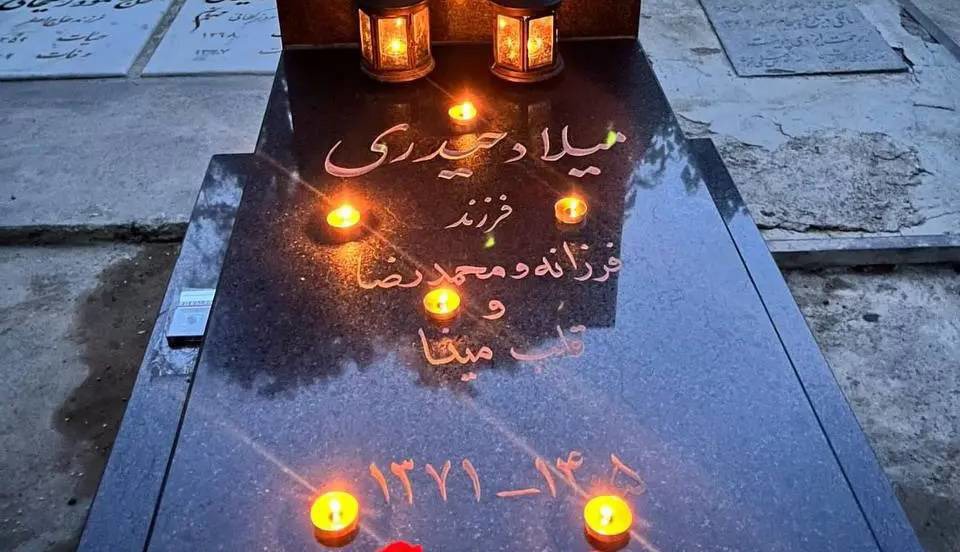 میلاد حیدری
فرزند
فرزانه و محمدرضا
و
قلب مینا
۱۳۷۱ – ۱۴۰۵